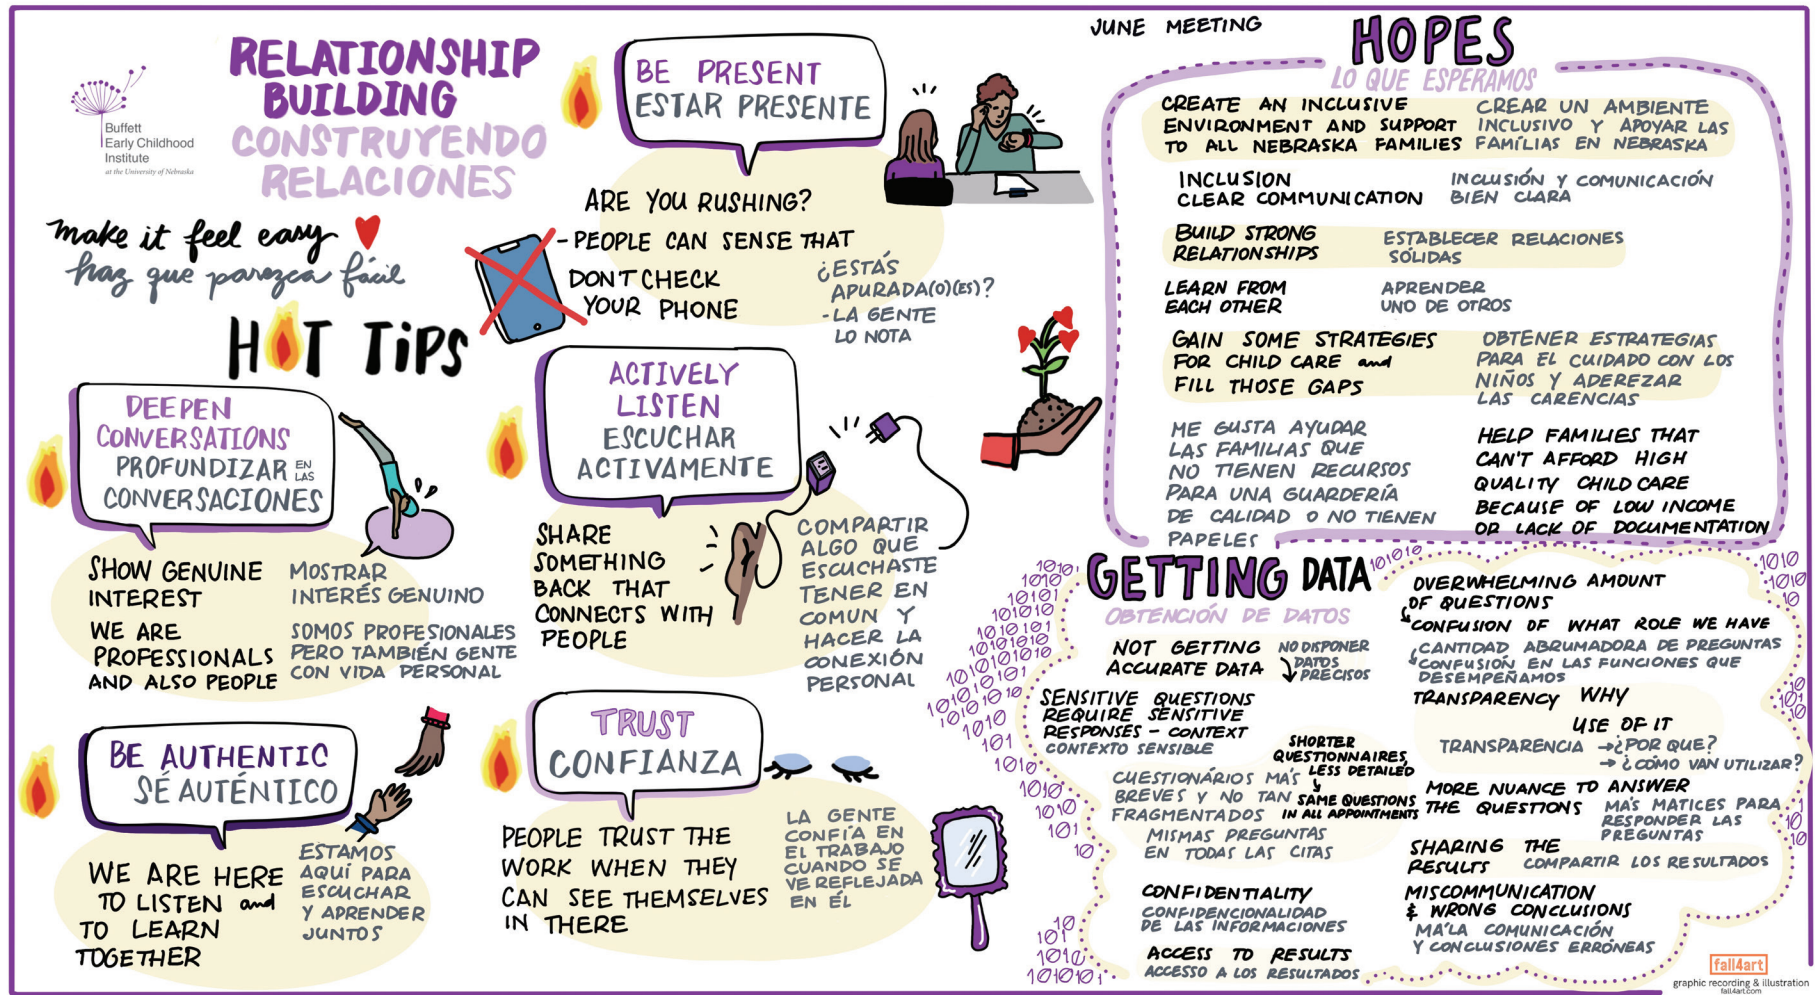 Buffett
Early Childhood
Institute
at the University of Nebraska
RELATIONSHIP
BUILDING
CONSTRUYENDO
RELACIONES
make it feel easy
haz que parezca fácil
HOT TiPS
DEEPEN
CONVERSATIONS
PROFUNDIZAR EN LAS
CONVERSACIONES
SHOW GENUINE
INTEREST
MOSTRAR
INTERÉS GENUINO
WE ARE
PROFESSIONALS
AND ALSO PEOPLE
SOMOS PROFESIONALES
PERO TAMBIÉN GENTE
CON VIDA PERSONAL
BE AUTHENTIC
SÉ AUTÉNTICO
WE ARE HERE
TO LISTEN and
TO LEARN
TOGETHER
ESTAMOS
AQUÍ PARA
ESCUCHAR
Y APRENDER
JUNTOS
BE PRESENT
ESTAR PRESENTE
ARE YOU RUSHING?
- PEOPLE CAN SENSE THAT
DON'T CHECK
YOUR PHONE
¿ESTÁS
APURADA(O)(ES)?
- LA GENTE
LO NOTA
ACTIVELY
LISTEN
ESCUCHAR
ACTIVAMENTE
SHARE
SOMETHING
BACK THAT
CONNECTS WITH
PEOPLE
COMPARTIR
ALGO QUE
ESCUCHASTE
TENER EN
COMUN Y
HACER LA
CONEXIÓN
PERSONAL
TRUST
CONFIANZA
PEOPLE TRUST THE
WORK WHEN THEY
CAN SEE THEMSELVES
IN THERE
LA GENTE
CONFÍA EN
EL TRABAJO
CUANDO SE
VE REFLEJADA
EN ÉL
JUNE MEETING
HOPES
LO QUE ESPERAMOS
CREATE AN INCLUSIVE
ENVIRONMENT AND SUPPORT
TO ALL NEBRASKA FAMILIES
CREAR UN AMBIENTE
INCLUSIVO Y APOYAR LAS
FAMÍLIAS EN NEBRASKA
INCLUSION
CLEAR COMMUNICATION
INCLUSIÓN Y COMUNICACIÓN
BIEN CLARA
BUILD STRONG
RELATIONSHIPS
ESTABLECER RELACIONES
SÓLIDAS
LEARN FROM
EACH OTHER
APRENDER
UNO DE OTROS
GAIN SOME STRATEGIES
FOR CHILD CARE and
FILL THOSE GAPS
OBTENER ESTRATEGIAS
PARA EL CUIDADO CON LOS
NIÑOS Y ADEREZAR
LAS CARENCIAS
ME GUSTA AYUDAR
LAS FAMILIAS QUE
NO TIENEN RECURSOS
PARA UNA GUARDERÍA
DE CALIDAD O NO TIENEN
PAPELES
HELP FAMILIES THAT
CAN'T AFFORD HIGH
QUALITY CHILD CARE
BECAUSE OF LOW INCOME
OR LACK OF DOCUMENTATION
GETTING DATA
OBTENCIÓN DE DATOS
NOT GETTING
ACCURATE DATA
NO DISPONER
DATOS
PRECISOS
SENSITIVE QUESTIONS
REQUIRE SENSITIVE
RESPONSES - CONTEXT
CONTEXTO SENSIBLE
SHORTER
QUESTIONNAIRES,
LESS DETAILED
SAME QUESTIONS
IN ALL APPOINTMENTS
CUESTIONÁRIOS MÁS
BREVES Y NO TAN
FRAGMENTADOS
MISMAS PREGUNTAS
EN TODAS LAS CITAS
CONFIDENTIALITY
CONFIDENCIONALIDAD
DE LAS INFORMACIONES
ACCESS TO RESULTS
ACCESSO A LOS RESULTADOS
OVERWHELMING AMOUNT
OF QUESTIONS
CONFUSION OF WHAT ROLE WE HAVE
CANTIDAD ABRUMADORA DE PREGUNTAS
CONFUSIÓN EN LAS FUNCIONES QUE
DESEMPEÑAMOS
TRANSPARENCY WHY
USE OF IT
TRANSPARÊNCIA → ¿POR QUE?
→ ¿CÓMO VAN UTILIZAR?
MORE NUANCE TO ANSWER
THE QUESTIONS
MÁS MATICES PARA
RESPONDER LAS
PREGUNTAS
SHARING THE
RESULTS
COMPARTIR LOS RESULTADOS
MISCOMMUNICATION
& WRONG CONCLUSIONS
MA'LA COMUNICACIÓN
Y CONCLUSIONES ERRÓNEAS
fall4art
graphic recording & illustration
fall4art.com